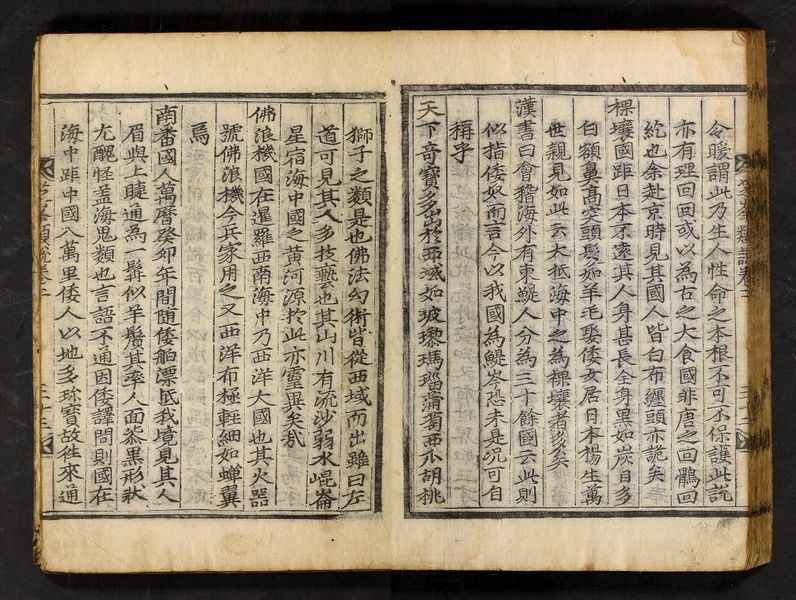 令暖謂此乃生人性命之本根不可不保護此說
亦有理回回或以為古之大食國非唐之回鶻回
紇也余赴京時見其國人皆白布纏頭亦詭矣
裸壤國距日本不遠其人身甚長全身黑如炭目多
白額鼻高突頭髮如羊毛娶倭女居日本楊生萬
世親見如此云大抵海中之為裸壤者多矣
漢書曰會稽海外有東鯷人分為三十餘國云此則
似指倭奴而言今以我國為鯷岑恐未是況可自
稱乎
天下奇寶多出於西域如玻瓈瑪瑙蒲萄西瓜胡桃
芝峯類說卷二
獅子之類是也佛法幻術皆從西域而出雖曰左
道可見其人多技藝也其山川有流沙弱水崐崙
星宿海中國之黃河源於此亦靈異矣哉
佛浪機國在暹羅西南海中乃西洋大國也其火器
號佛浪機今兵家用之又西洋布極輕細如蟬翼
焉
南番國人萬曆癸卯年間隨倭舶漂抵我境見其人
眉與上睫通為一髯似羊鬚其率人面漆黑形狀
尤醜怪盖海鬼類也言語不通因倭譯問則國在
海中距中國八萬里倭人以地多珎寶故徃來通
芝峯類說卷二
三十三